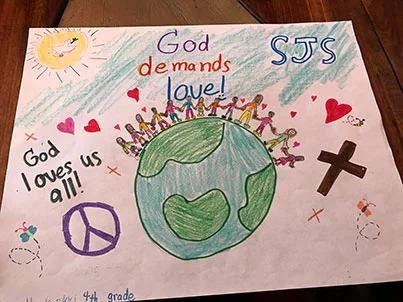 God
demands
love!
SJS
God
loves us
all!
4th grade